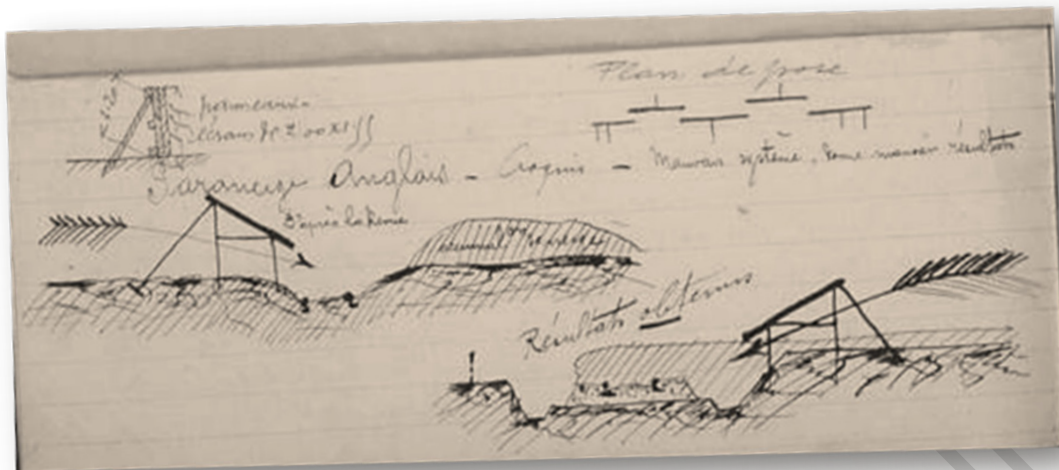 Plan de pose
panneaux
écrans de 2.00 x 1
Paraneige Anglais – Croquis – Mauvais système, donne mauvais résultats
D'après la théorie
Résultats obtenus